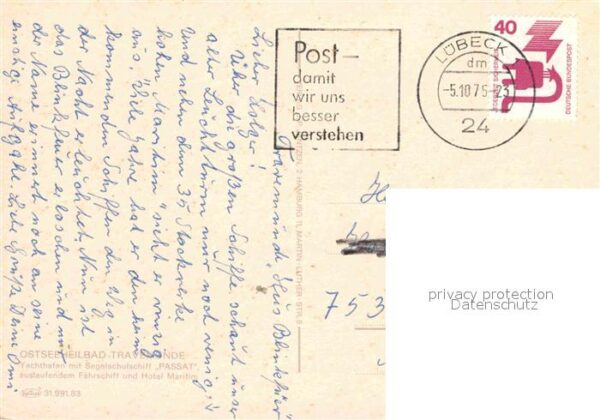 Post –
damit
wir uns
besser
verstehen
LÜBECK
dm
-5.10.75-23
24
40
DEUTSCHE BUNDESPOST
JEDERZEIT SICHERHEIT
Travemünde Haus Blinkfüer
Lieber Holger!
Über die großen Schiffe schaut unser
alter Leuchtturm nur noch wenig,
Und neben dem 35 Stockwerke
hohen Maritim sieht er winzig
aus. Viele Jahre hat er den heim
kommenden Schiffen den Weg in
der Nacht erleuchtet. Nun ist
das Blinkfeuer erloschen und nur
der Name erinnert noch an seine
einstige Aufgabe. Liebe Grüße Deine Omi
753
OSTSEEHEILBAD TRAVEMÜNDE
Yachthafen mit Segelschulschiff „PASSAT"
auslaufendem Fährschiff und Hotel Maritim
31.991.83
2 HAMBURG 11, MARTIN-LUTHER-STR.
privacy protection
Datenschutz